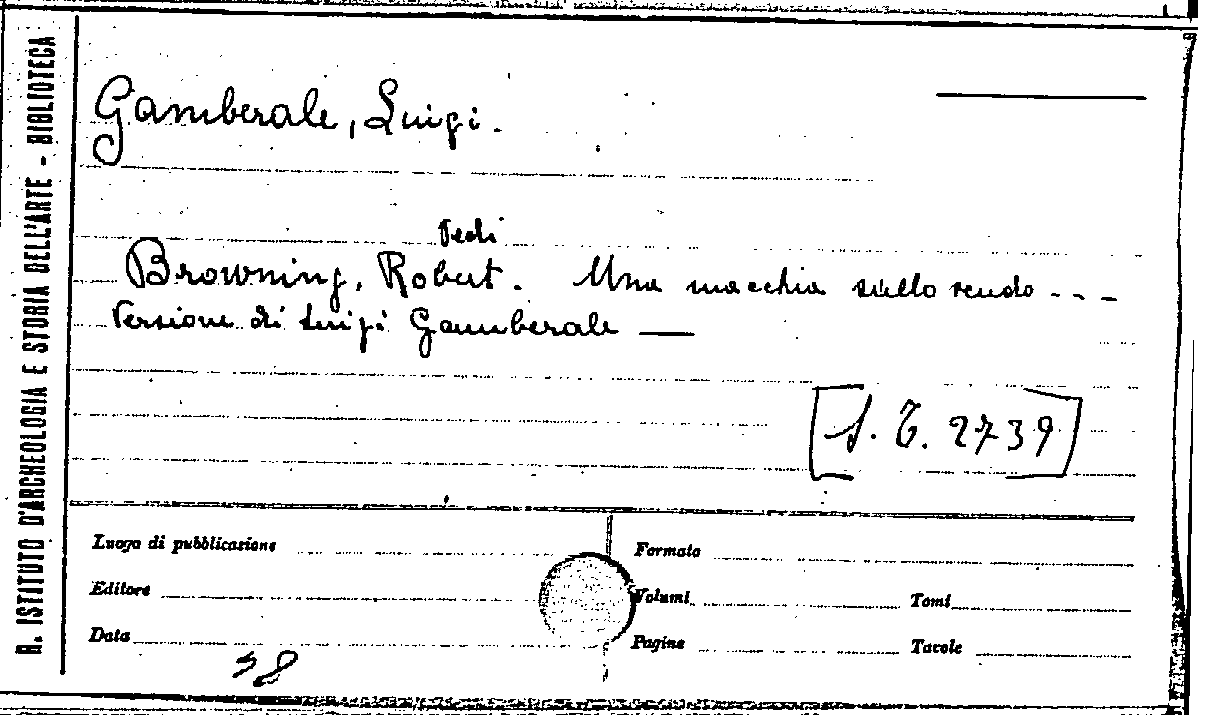 R. ISTITUTO D'ARCHEOLOGIA E STORIA DELL'ARTE - BIBLIOTECA
Gamberale, Luigi.
Vedi
Browning, Robert. Una macchia sullo scudo - - -
Versione di Luigi Gamberale —
[S. T. 2739]
Luogo di pubblicazione
Formato
Editore
Volumi
Tomi
Data
Pagine
Tavole
58